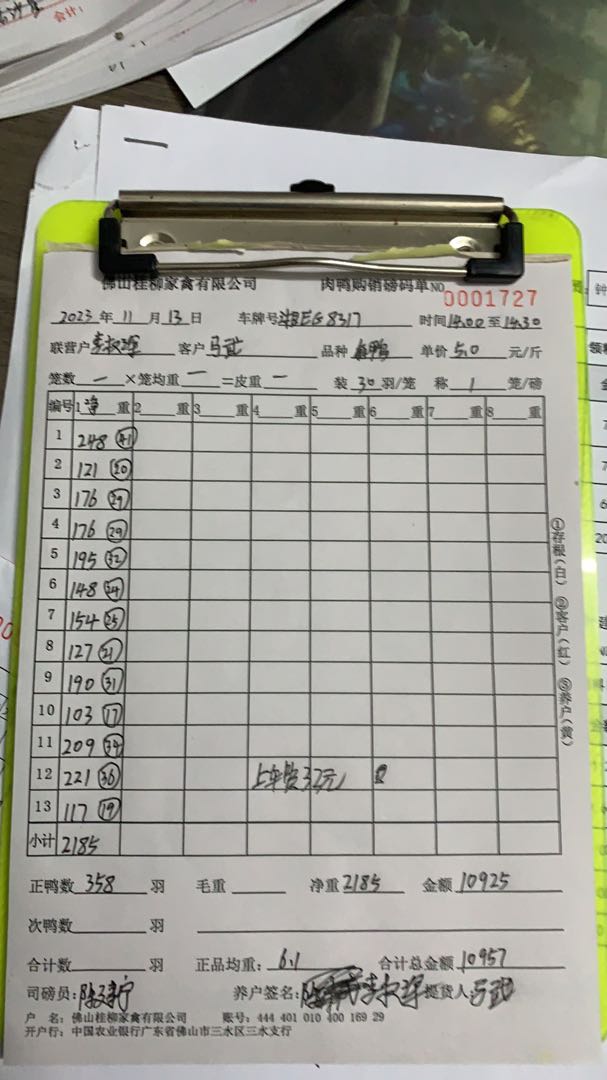 会计:
佛山桂柳家禽有限公司 肉鸭购销磅码单NO 0001727
2023 年 11 月 13 日 车牌号 EG8317 时间 14:00 至 14:30
联营户 李权辉 客户 马武 品种 鸭 单价 5.0 元/斤
笼数 一 ×笼均重 一 =皮重 一 装 30 羽/笼 称 1 笼/磅
编号 1 净 重 2 重 3 重 4 重 5 重 6 重 7 重 8 重
1 248 41
2 121 20
3 176 29
4 176 29
5 195 32
6 148 24
7 154 25
8 127 21
9 190 31
10 103 17
11 209 34
12 221 36 上车费32元
13 117 19
小计 2185
正鸭数 358 羽 毛重 净重 2185 金额 10925
次鸭数 羽
合计数 羽 正品均重: 6.1 合计总金额 10957
司磅员: 养户签名: 李权辉 提货人 马武
户 名: 佛山桂柳家禽有限公司 账号: 444 401 010 400 169 29
开户行: 中国农业银行广东省佛山市三水区三水支行
①存根(白) ②客户(红) ③养户(黄)